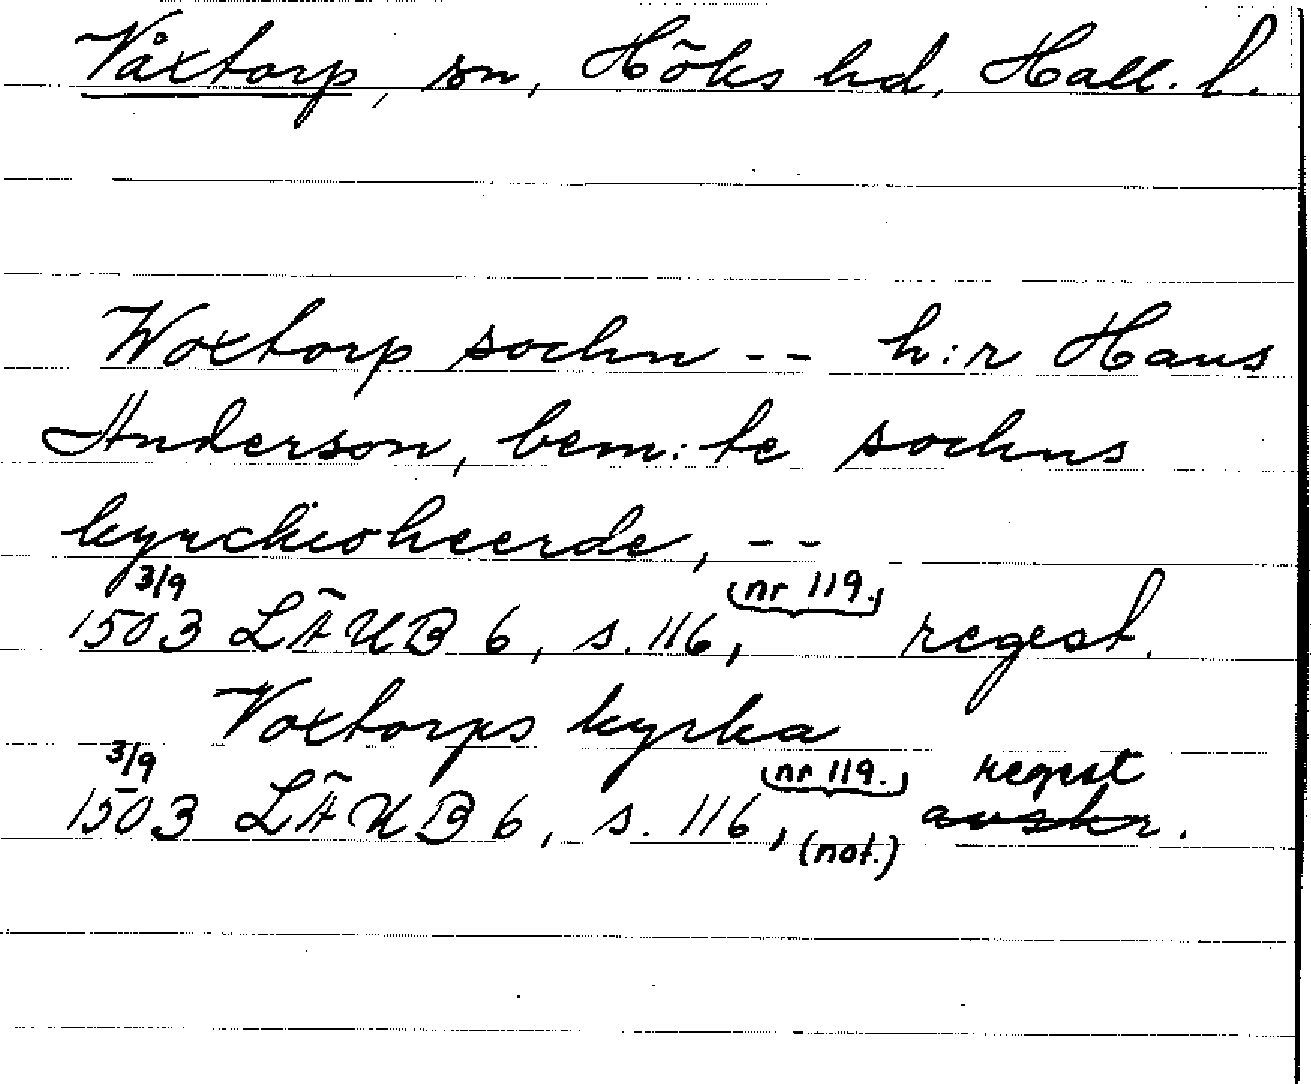 Våxtorp, sn, Höks hd, Hall. l.
Woxtorp sochn -- h:r Hans
Anderson, bem:te sochns
kyrckioheerde, --
3/9
1503 LÄUB 6, s. 116, (nr 119.) regest.
Voxtorps kyrka
3/9
1503 LÄUB 6, s. 116, (nr 119.) (not.) regest avskr.